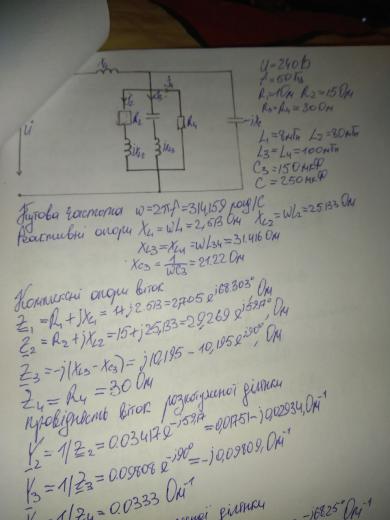 U=240В
f=50Гц
R₁=1Ом R₂=15Ом
R₃=R₄=30Ом
L₁=8мГн L₂=80мГн
L₃=L₄=100мГн
C₃=150мкФ
C=250мкФ
R₂
R₄
jX_L2
jX_L3
U
Кутова частота ω=2πf=314,159 рад/с
Реактивні опори X_L1=ωL₁=2,513 Ом X_L2=ωL₂=25.133 Ом
X_L3=X_L4=ωL₃₄=31.416 Ом
X_C3=1/ωC₃=21.22 Ом
Комплексні опори віток
Z₁=R₁+jX_L1=1+j2.513=2.705e^j68.303° Ом
Z₂=R₂+jX_L2=15+j25,133=29,269e^j59.17° Ом
Z₃=-j(X_L3-X_C3)=j10,195=10,195e^j90° Ом
Z₄=R₄=30 Ом
провідність віток розгалуженої ділянки
Y₂=1/Z₂=0.03417e^-j59.17=0,01751-j0,02934 Ом⁻¹
Y₃=1/Z₃=0.09808e^-j90°=-j0,09809 Ом⁻¹
=0.0333 Ом⁻¹